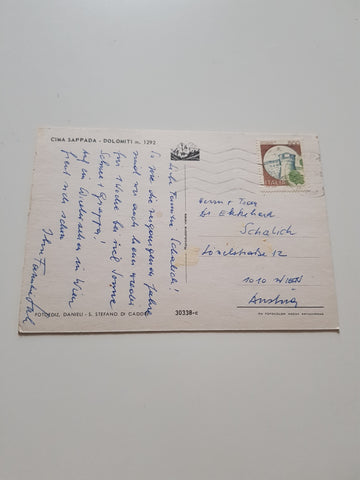 CIMA SAPPADA - DOLOMITI m. 1292
Liebe Familie Schalich!
So wie die vergangenen Jahre
sind wir auch heuer wieder
für 1 Woche bei viel Sonne
Schnee + Grappa!
Auf ein Wiedersehen in Wien
freut sich schon
Ihre
FOTOEDIZ. DANIELI - S. STEFANO DI CADORE
30338-c
ITALIA
Herrn + Frau
Dr Ekkehard
Schalich
1010 Wien
Austria